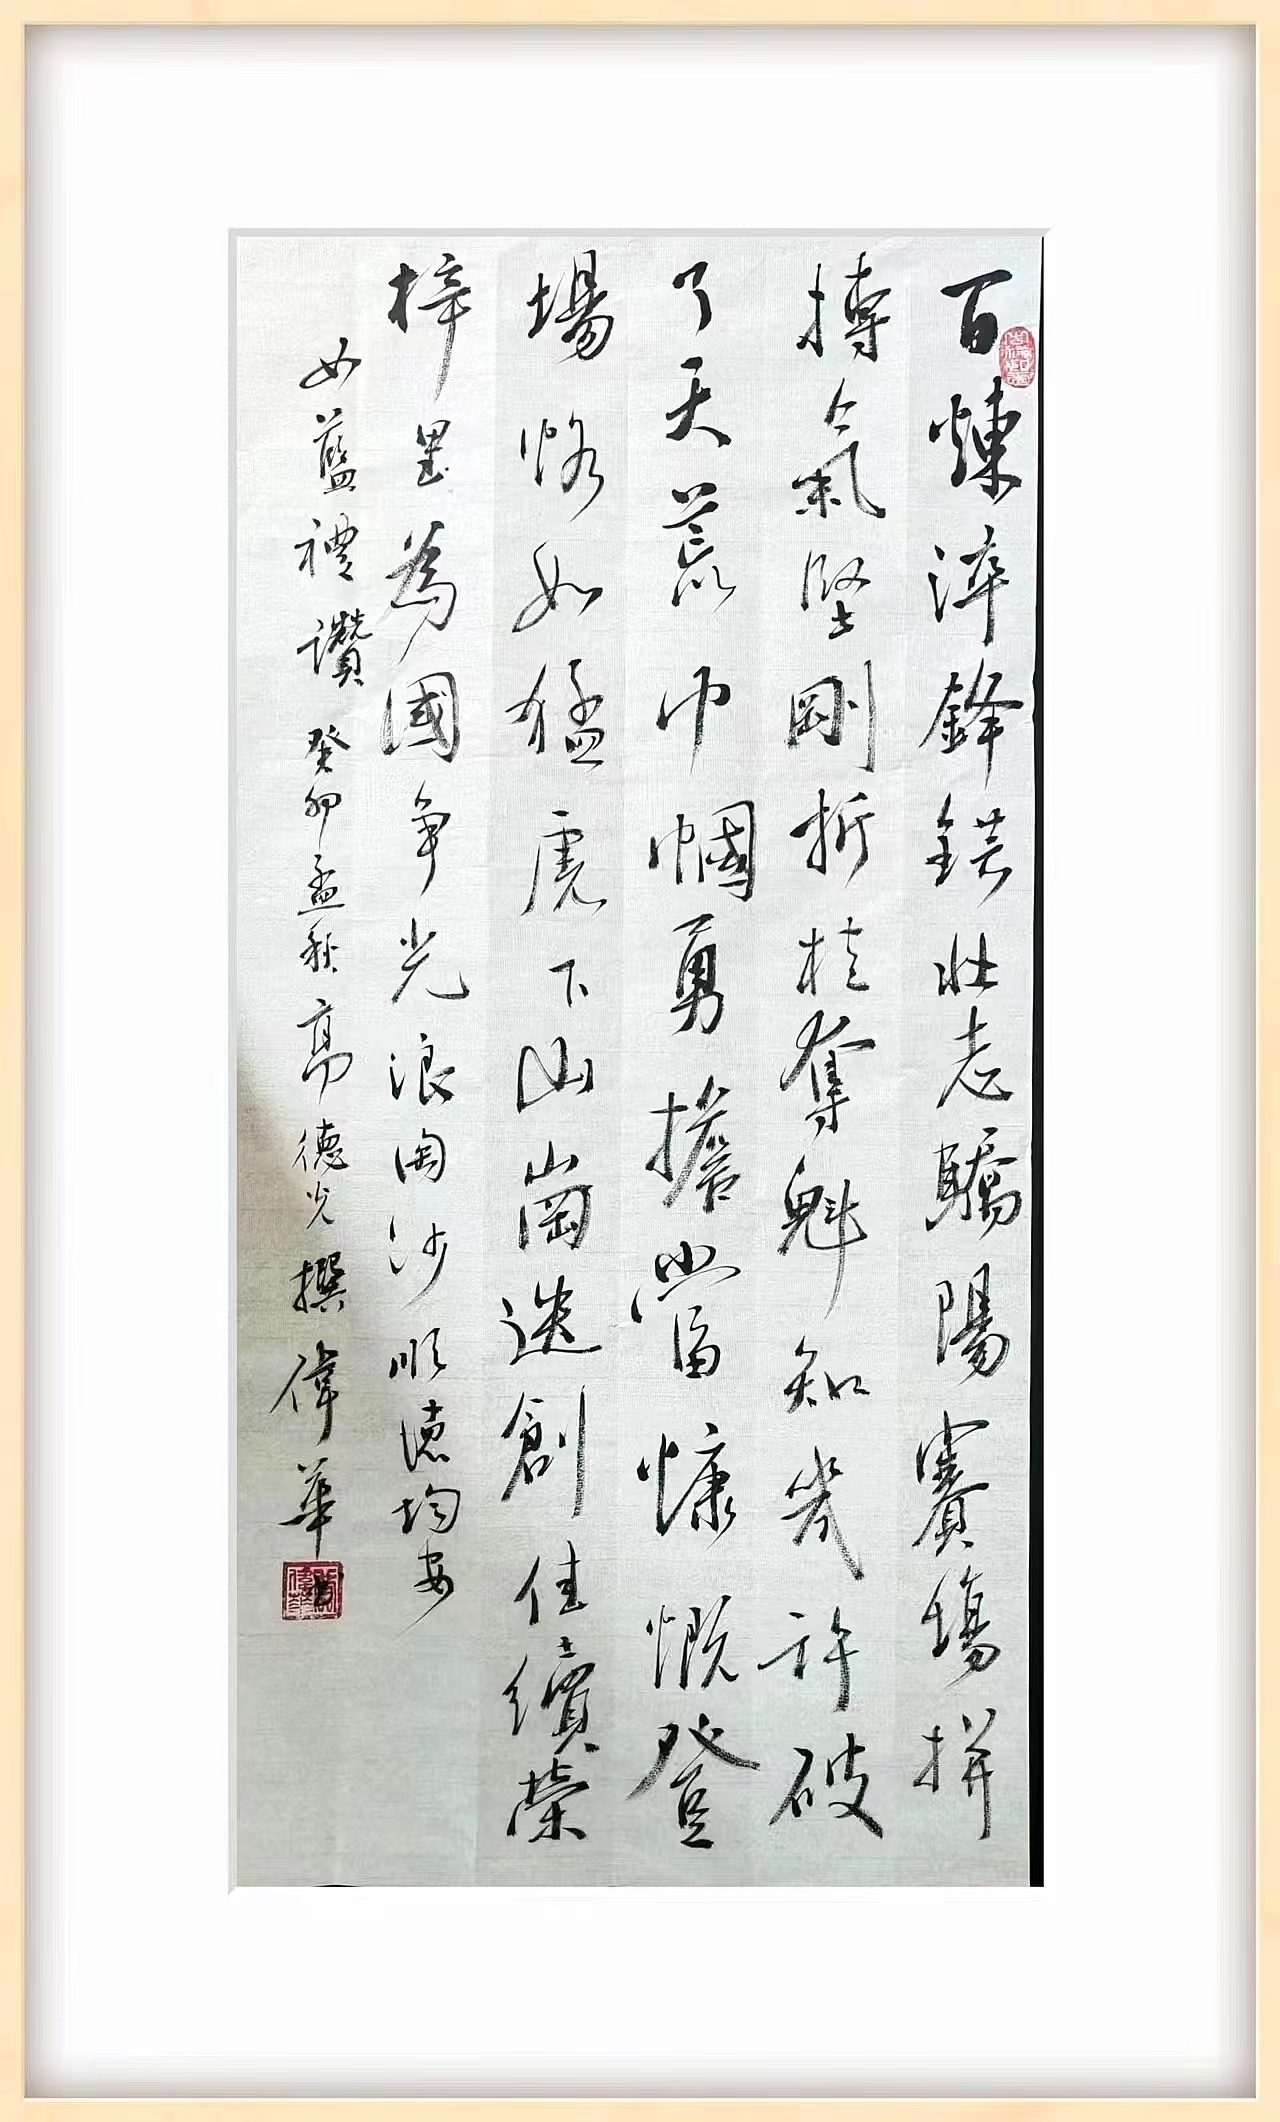 百煉淬鋒鋩壯志驕陽賽場拼
搏氣堅剛折桂奪魁知幾許破
了天荒巾幗勇擔當慷慨登
場恍如猛虎下山崗迭創佳績榮
梓里為國争光浪淘沙順德均安
女藍禮讚癸卯孟秋高德光撰偉華